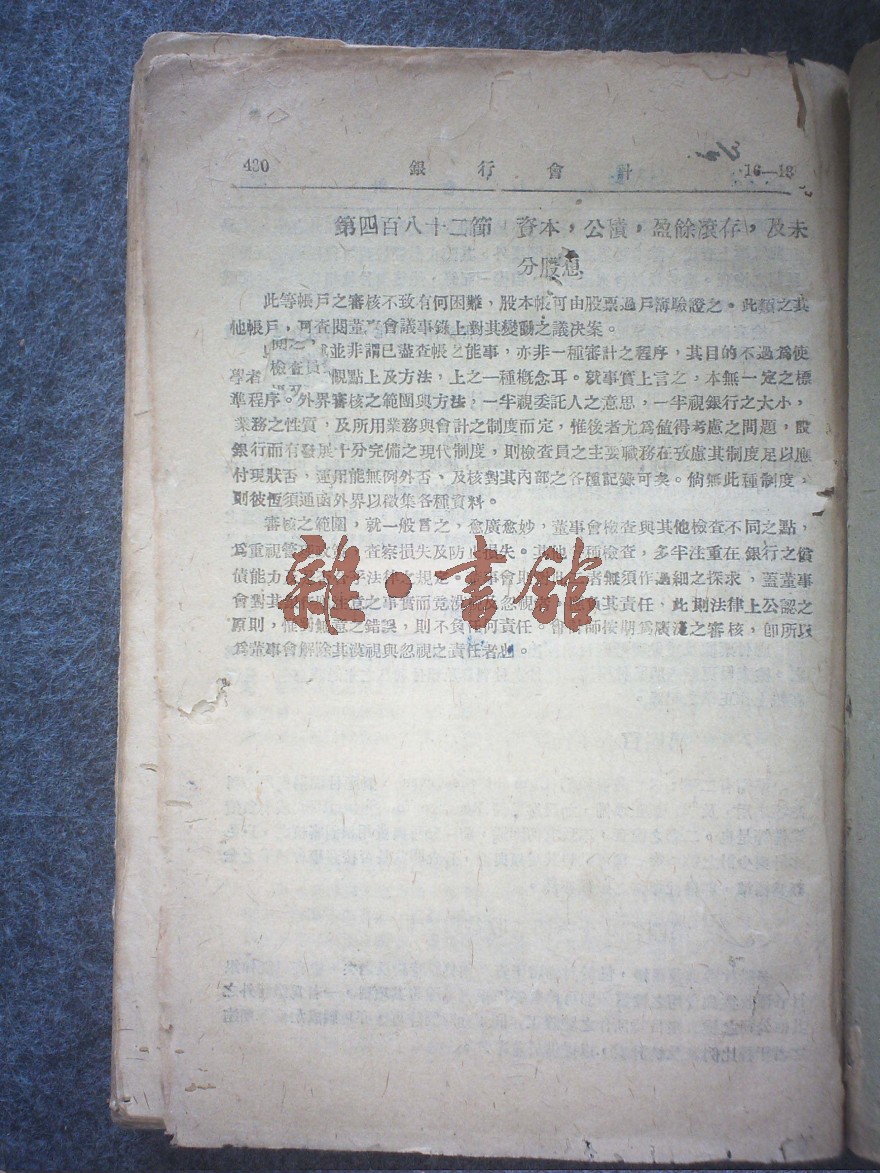 430 銀行會計 16—18
第四百八十二節 資本，公積，盈餘滾存，及未
分股息
此等帳戶之審核不致有何困難，股本帳可由股票過戶簿驗證之。此類之其
他帳戶，可查閱董事會議事錄上對其變動之議決案。
並非謂已盡查帳之能事，亦非一種審計之程序，其目的不過爲使
學者 檢查員 觀點上及方法，上之一種概念耳。就事實上言之，本無一定之標
準程序。外界審核之範圍與方法，一半視委託人之意思，一半視銀行之大小，
業務之性質，及所用業務與會計之制度而定，惟後者尤爲値得考慮之問題，設
銀行而有發展十分完備之現代制度，則檢查員之主要職務在考慮其制度足以應
付現狀否，運用能無例外否，及核對其內部之各種記錄可矣。倘無此種制度，
則彼恆須通函外界以徵集各種資料。
審核之範圍，就一般言之，愈廣愈妙，董事會檢查與其他檢查不同之點，
爲重視管理 查察損失及防止損失。其他 種檢查，多半注重在銀行之償
債能力 法律之規定。 事會 者無須作過細之探求，蓋董事
會對其 注意之事實而竟 忽視 其責任，此則法律上公認之
原則，惟對無意之錯誤，則不負任何責任。會計師按期爲廣泛之審核，卽所以
爲董事會解除其漠視與忽視之責任者也。
雜·書館